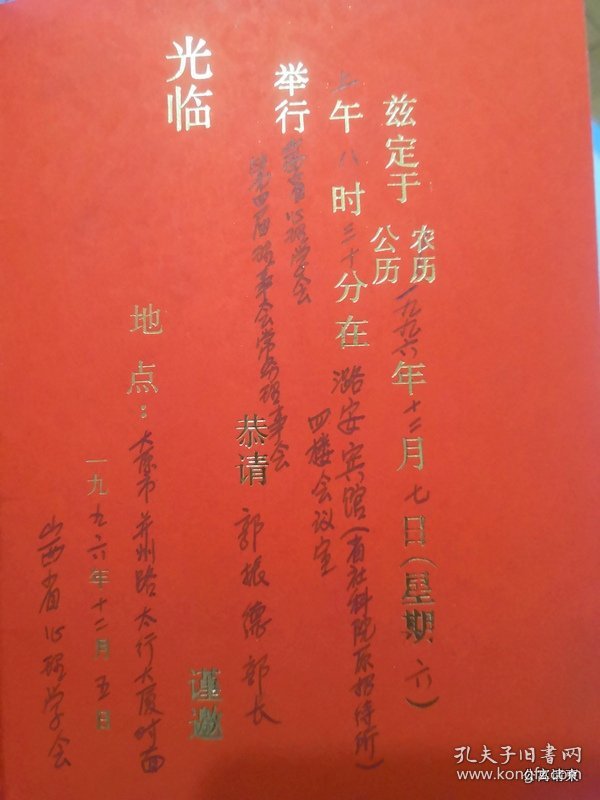 兹定于 农历
公历 一九九六年十二月七日(星期六)
上午八时三十分在潞安宾馆(省社科院原招待所)
四楼会议室
举行 山西省心理学会
第四届理事会常务理事会
恭请 郭振儒部长
光临
谨邀
地点：太原市并州路太行大厦对面
一九九六年十二月五日
山西省心理学会
孔夫子旧书网
www.kongfz.com